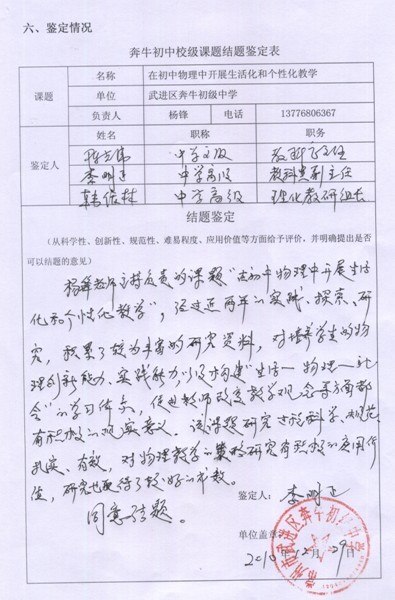 六、鉴定情况
奔牛初中校级课题结题鉴定表
课题 名称 在初中物理中开展生活化和个性化教学
单位 武进区奔牛初级中学
负责人 杨锋 电话 13776806367
鉴定人 姓名 职称 职务
中学高级
李明正 中学高级 教科室副主任
中学高级 理化教研组长
结题鉴定
(从科学性、创新性、规范性、难易程度、应用价值等方面给予评价，并明确提出是否
可以结题的意见)
杨锋老师主持负责的课题“在初中物理中开展生活
化和个性化教学”，经过近两年的实践、探索、研
究，积累了较为丰富的研究资料，对培养学生的物
理创新能力、实践能力，以及构建“生活—物理—社
会”的学习体系，促进教师改变教学观念等方面都
有积极的现实意义。该课题研究过程科学、规范、
扎实、有效，对物理教学的策略研究有积极的应用价
值，研究也取得了较好的成效。
同意结题。
鉴定人：李明正
单位盖章：
2010年12月29日
常州市武进区奔牛初级中学